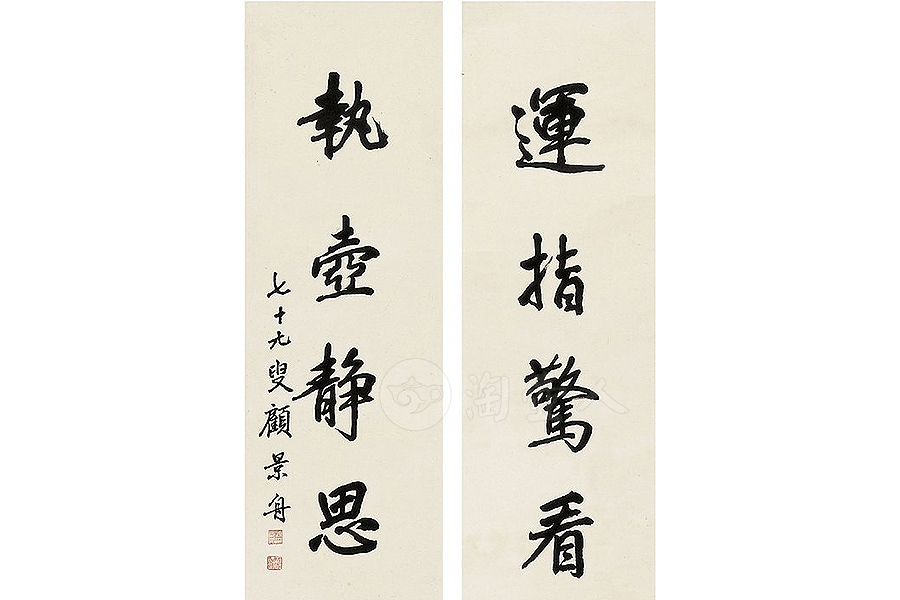 運指驚看
執壺静思
七十九叟顧景舟
淘壶人